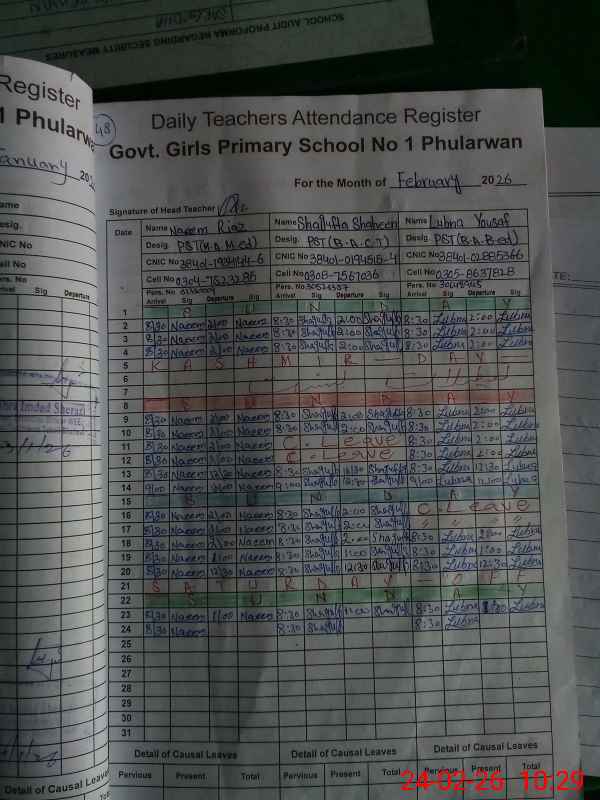 SCHOOL AUDIT PROFORMA REGARDING SECURITY MEASURES
Register
1 Phularwan
January 202
Desig.
CNIC No
Cell No
Pers. No
Arrival Sig Departure
48
Daily Teachers Attendance Register
Govt. Girls Primary School No 1 Phularwan
For the Month of February 2026
Signature of Head Teacher
Date Name Naeem Riaz Name Shagufta Shaheen Name Lubna Yousaf
Desig. PST(M.A.M.ed) Desig. PST(B.A.C.T) Desig. PST(B.A.B.ed)
CNIC No CNIC No 38401-0194515-4 CNIC No 38401-0285366
Cell No 0304-7523285 Cell No 0308-7567036 Cell No 0305-8637828
Pers. No Pers. No Pers. No
Arrival Sig Departure Sig Arrival Sig Departure Sig Arrival Sig Departure Sig
1 S U N D A Y
2 8:30 Naeem 2:00 Naeem 8:30 Shaguf 2:00 Shaguf 8:30 Lubna 2:00 Lubna
3 8:30 Naeem 2:00 Naeem 8:30 Shaguf 2:00 Shaguf 8:30 Lubna 2:00 Lubna
4 8:30 Naeem 2:00 Naeem 8:30 Shaguf 2:00 Shaguf 8:30 Lubna 2:00 Lubna
5 K A S H M I R D A Y
6
7
8 S U N D A Y
9 8:30 Naeem 2:00 Naeem 8:30 Shaguf 2:00 Shaguf 8:30 Lubna 2:00 Lubna
10 8:30 Naeem 2:00 Naeem 8:30 Shaguf 2:00 Shaguf 8:30 Lubna 2:00 Lubna
11 8:30 Naeem 2:00 Naeem C. Leave 8:30 Lubna 2:00 Lubna
12 8:30 Naeem 2:00 Naeem C. Leave 8:30 Lubna 2:00 Lubna
13 8:30 Naeem 12:30 Naeem 8:30 Shaguf 12:30 Shaguf 8:30 Lubna 12:30 Lubna
14 9:00 Naeem Naeem 9:00 Shaguf Shaguf 9:00 Lubna Lubna
15 S U N D A Y
16 8:30 Naeem 2:00 Naeem 8:30 Shaguf 2:00 Shaguf C. Leave
17 8:30 Naeem 2:00 Naeem 8:30 Shaguf 2:00 Shaguf " " "
18 8:30 Naeem 2:00 Naeem 8:30 Shaguf 2:00 Shaguf 8:30 Lubna 2:00 Lubna
19 8:30 Naeem 1:00 Naeem 8:30 Shaguf 1:00 Shaguf 8:30 Lubna 1:00 Lubna
20 8:30 Naeem 12:30 Naeem 8:30 Shaguf 12:30 Shaguf 8:30 Lubna 12:30 Lubna
21 S A T U R D A Y - O F F
22 S U N D A Y
23 8:30 Naeem 1:00 Naeem 8:30 Shaguf 1:00 Shaguf 8:30 Lubna 1:00 Lubna
24 8:30 Naeem 8:30 Shaguf 8:30 Lubna
25
26
27
28
29
30
31
Detail of Causal Leaves Detail of Causal Leaves Detail of Causal Leaves
Pervious Present Total Pervious Present Total Pervious Present Total
Detail of Causal Leaves
24-02-26 10:29